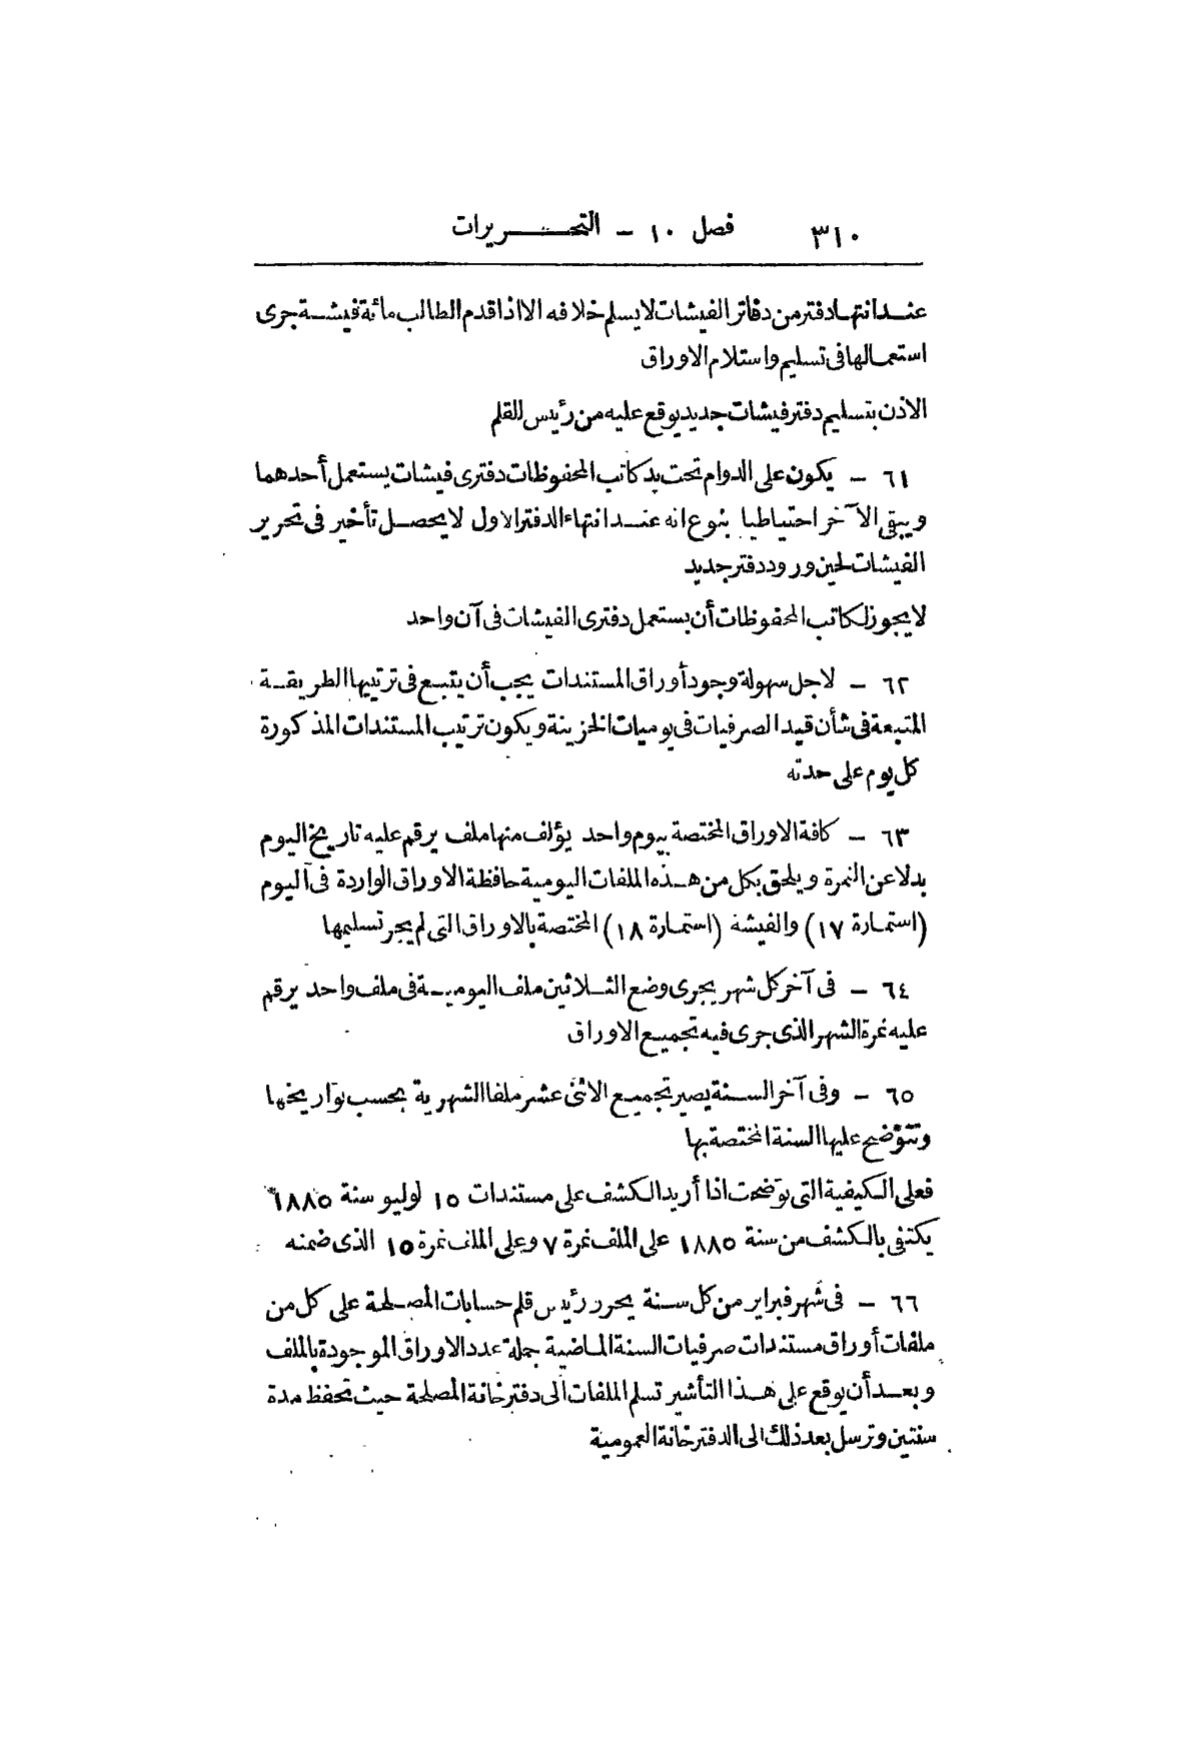 ٣١٠ فصل ١٠ — التحـــــريرات
عند انتهاء دفتر من دفاتر الفيشات لا يسلم خلافه الا اذا قدم الطالب مائة فيشة جرى
استعمالها فى تسليم واستلام الاوراق
الاذن بتسليم دفتر فيشات جديد يوقع عليه من رئيس القلم
٦١ — يكون على الدوام تحت يد كاتب المحفوظات دفترى فيشات يستعمل أحدهما
ويبقى الآخر احتياطيا بنوع انه عند انتهاء الدفتر الاول لا يحصل تأخير فى تحرير
الفيشات لحين ورود دفتر جديد
لا يجوز لكاتب المحفوظات أن يستعمل دفترى الفيشات فى آن واحد
٦٢ — لاجل سهولة وجود أوراق المستندات يجب أن يتبع فى ترتيبها الطريقة
المتبعة فى شأن قيد الصرفيات فى يوميات الخزينة ويكون ترتيب المستندات المذكورة
كل يوم على حدته
٦٣ — كافة الاوراق المختصة بيوم واحد يؤلف منها ملف يرقم عليه تاريخ اليوم
بدلا عن النمرة ويلحق بكل من هذه الملفات اليومية حافظة الاوراق الواردة فى اليوم
(استمارة ١٧) والفيشة (استمارة ١٨) المختصة بالاوراق التى لم يجر تسليمها
٦٤ — فى آخر كل شهر يجرى وضع الثلاثين ملف اليومية فى ملف واحد يرقم
عليه نمرة الشهر الذى جرى فيه تجميع الاوراق
٦٥ — وفى آخر السنة يصير تجميع الاثنى عشر ملفا الشهرية بحسب تواريخها
وتتوضح عليها السنة المختصة بها
فعلى الكيفية التى توضحت اذا أريد الكشف على مستندات ١٥ لوليو سنة ١٨٨٥
يكتفى بالكشف من سنة ١٨٨٥ على الملف نمرة ٧ وعلى الملف نمرة ١٥ الذى ضمنه
٦٦ — فى شهر فبراير من كل سنة يحرر رئيس قلم حسابات المصلحة على كل من
ملفات أوراق مستندات صرفيات السنة الماضية جملة عدد الاوراق الموجودة بالملف
وبعد أن يوقع على هذا التأشير تسلم الملفات الى دفترخانة المصلحة حيث تحفظ مدة
سنتين وترسل بعد ذلك الى الدفترخانة العمومية